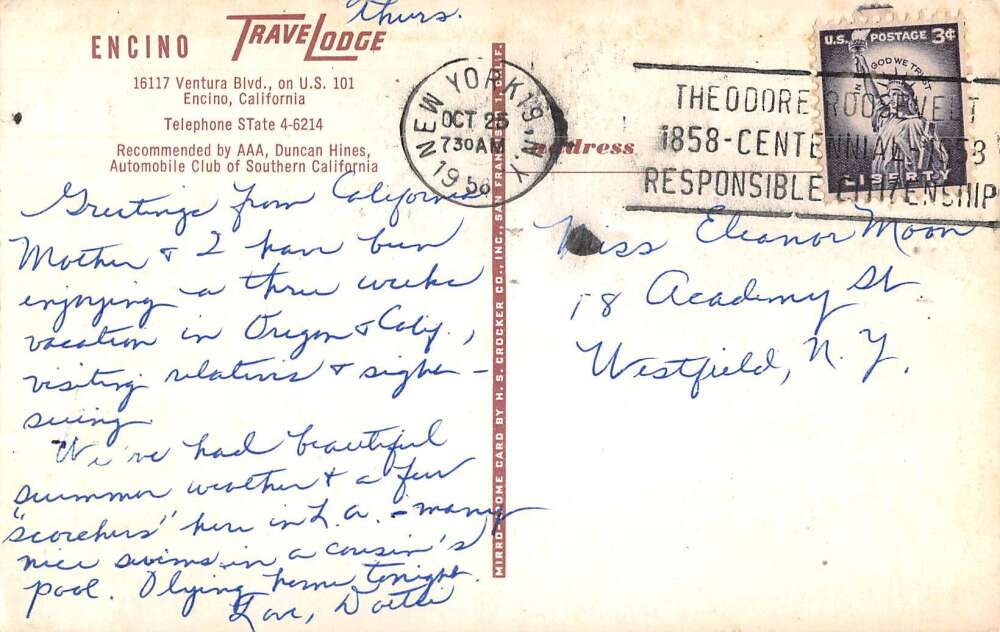 Thurs.
ENCINO TRAVELODGE
16117 Ventura Blvd., on U.S. 101
Encino, California
Telephone STate 4-6214
Recommended by AAA, Duncan Hines,
Automobile Club of Southern California
Greetings from California
Mother & I have been
enjoying a three weeks
vacation in Oregon & Calif.,
visiting relatives & sight-
seeing
We've had beautiful
summer weather & a few
"scorchers" here in L.A. - many
nice swims in a cousin's
pool. Flying home tonight.
Love,
MIRRO-KROME CARD BY H. S. CROCKER CO., INC., SAN FRANCISCO 1, CALIF.
NEW YORK 19, N.Y.
OCT 25
730AM
1958
THEODORE ROOSEVELT
1858-CENTENNIAL-1958
RESPONSIBLE CITIZENSHIP
U.S. POSTAGE 3¢
IN GOD WE TRUST
LIBERTY
address
Miss Eleanor Moon
18 Academy St
Westfield, N.Y.